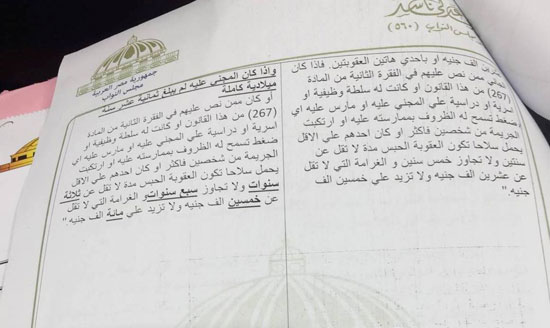 (٥٦٠)
جمهورية مصر العربية
مجلس النواب
الف جنيه او بأحدي هاتين العقوبتين. فإذا كان
ممن نص عليهم في الفقرة الثانية من المادة
(267) من هذا القانون او كانت له سلطة وظيفية او
اسرية او دراسية علي المجني عليه او مارس عليه اي
ضغط تسمح له الظروف بممارسته عليه او ارتكبت
الجريمة من شخصين فاكثر او كان احدهم علي الاقل
يحمل سلاحا تكون العقوبة الحبس مدة لا تقل عن
سنتين ولا تجاوز خمس سنين و الغرامة التي لا تقل
عن عشرين الف جنيه ولا تزيد علي خمسين الف
جنيه."
واذا كان المجني عليه لم يبلغ ثمانية عشر سنة
ميلادية كاملة
أو كان ممن نص عليهم في الفقرة الثانية من المادة
(267) من هذا القانون او كانت له سلطة وظيفية او
أسرية او دراسية علي المجني عليه او مارس عليه اي
ضغط تسمح له الظروف بممارسته عليه او ارتكبت
الجريمة من شخصين فاكثر او كان احدهم علي الاقل
يحمل سلاحا تكون العقوبة الحبس مدة لا تقل عن ثلاثة
سنوات ولا تجاوز سبع سنوات والغرامة التي لا تقل
عن خمسين الف جنيه ولا تزيد علي مائة الف جنيه."